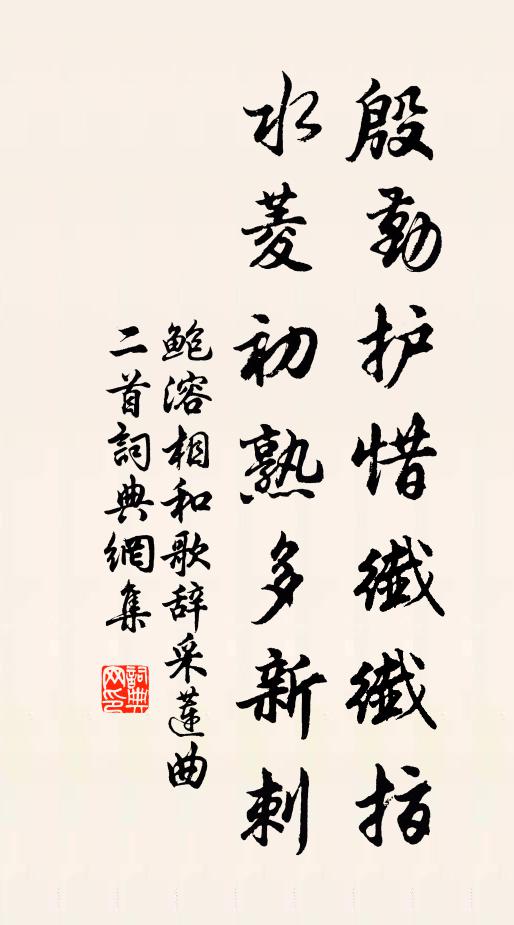 殷勤护惜纤纤指
水菱初熟多新刺
鲍溶相和歌辞采莲曲
二首詞典網集
詞典
网印